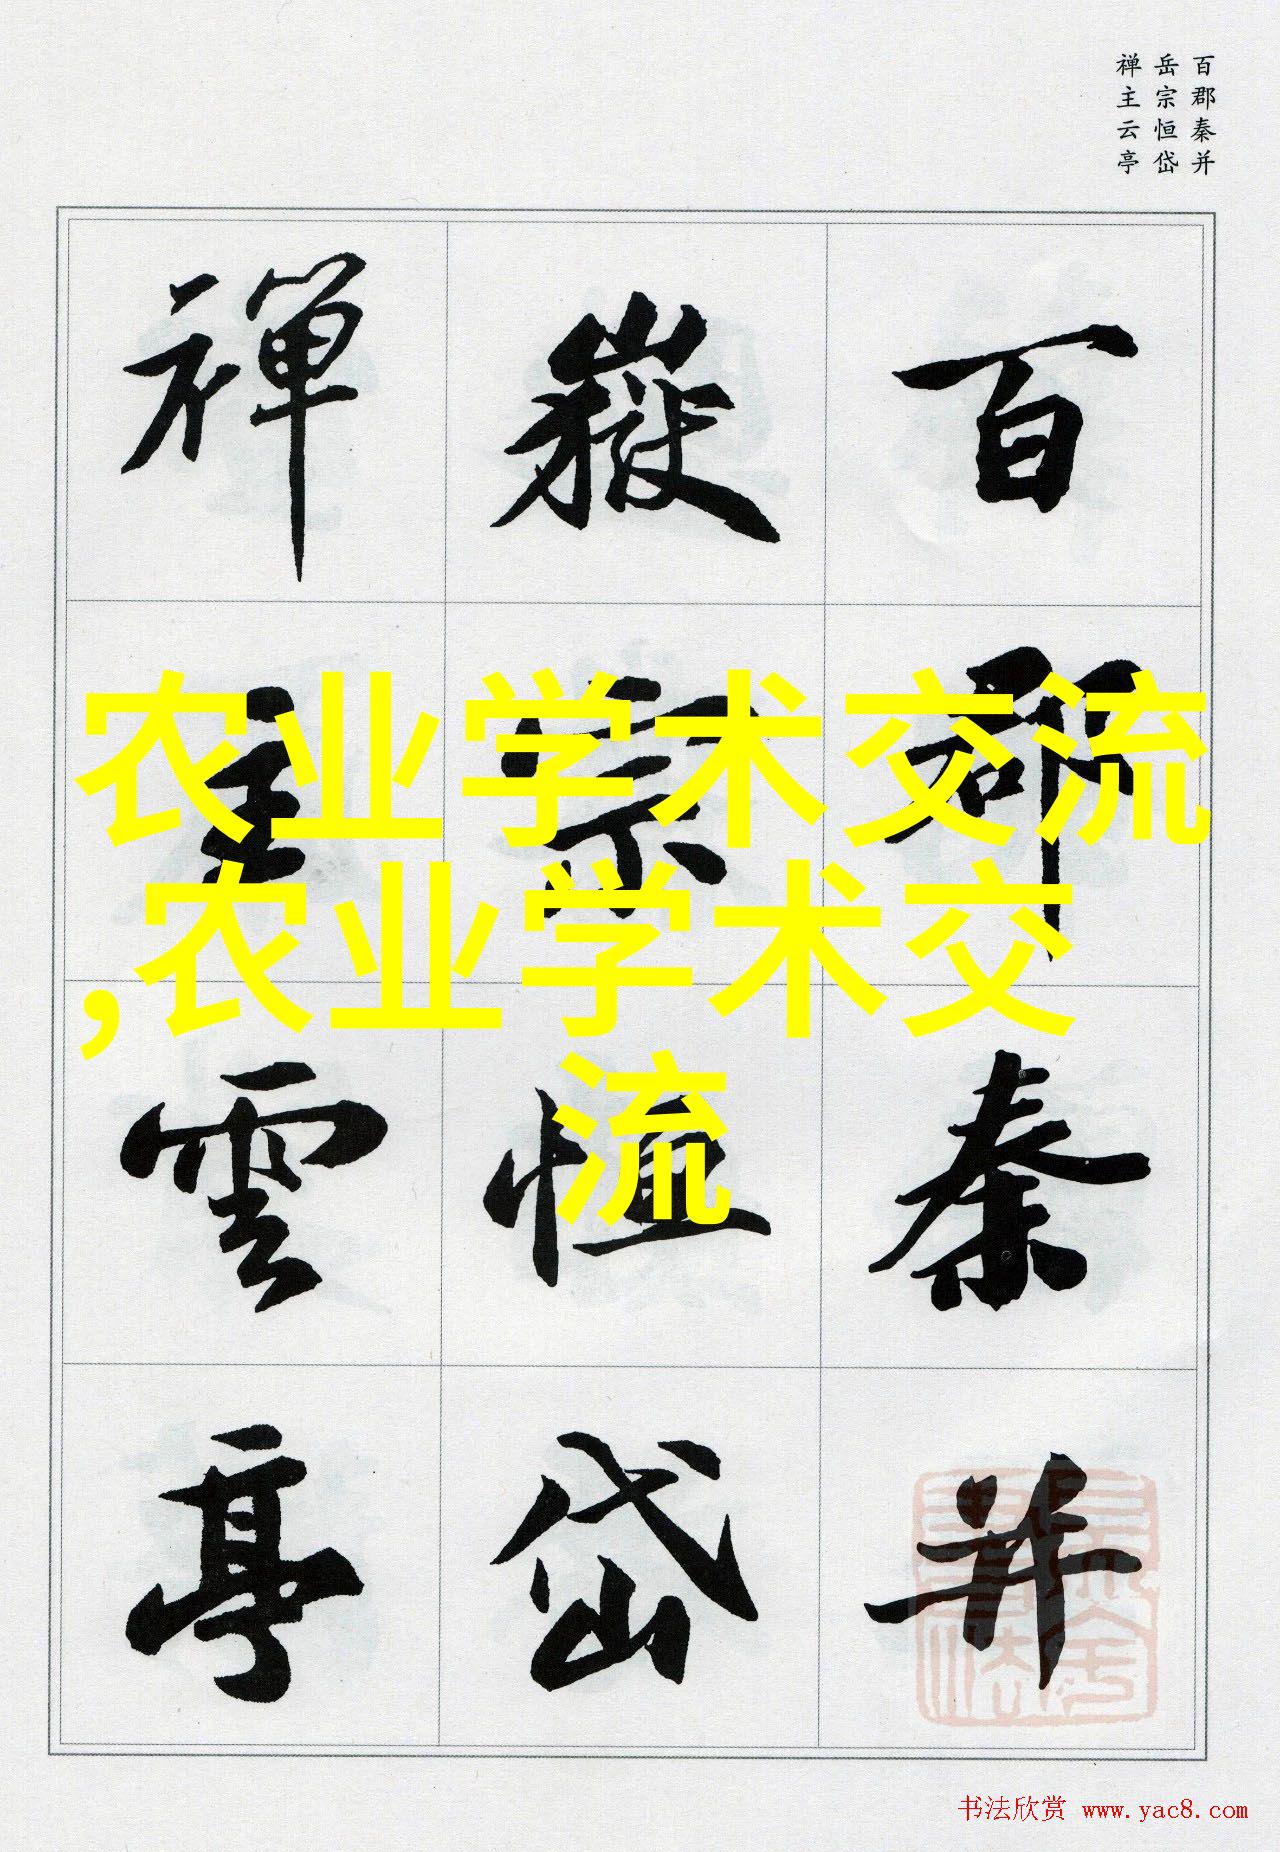 百郡秦并
岳宗恒岱
禅主云亭
百郡秦并
嶽宗恒岱
禪主雲亭
农业学术交流
,农业学术交
流
书法欣赏 www.yac8.com